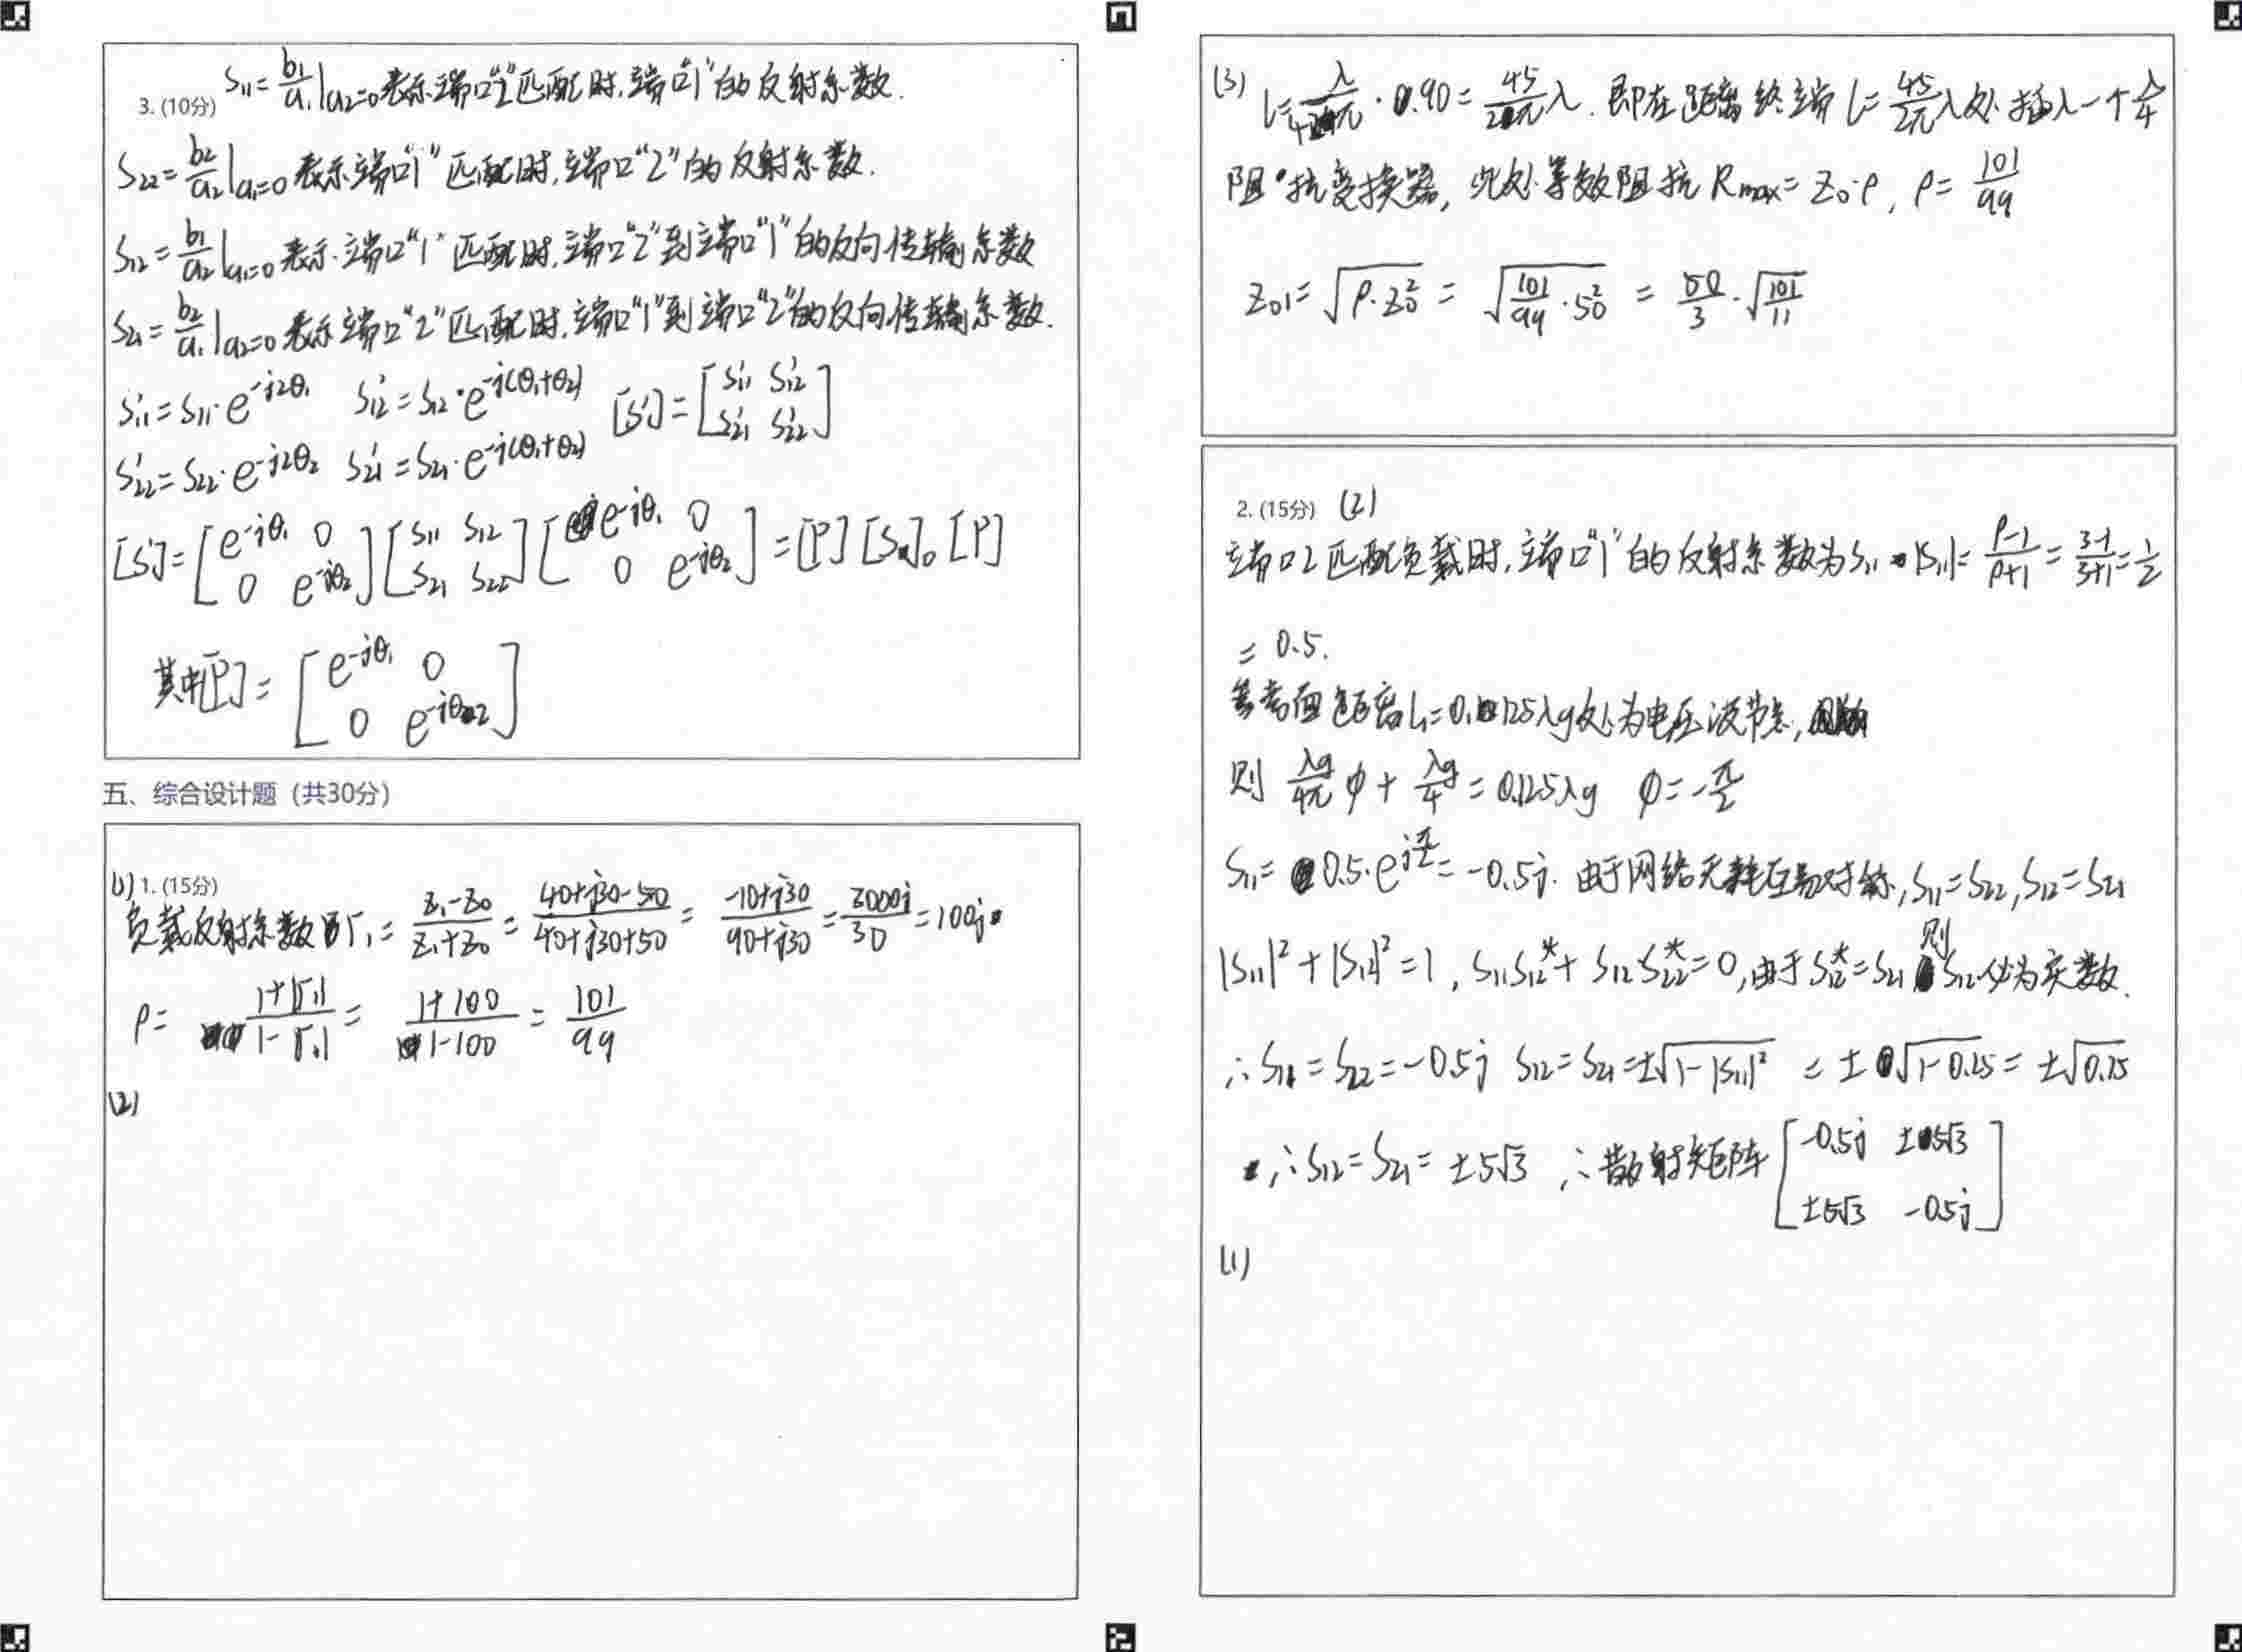 3. (10分) S₁₁ = b₁/a₁|a₂=0 表示端口"2"匹配时,端口"1"的反射系数.
S₂₂ = b₂/a₂|a₁=0 表示端口"1"匹配时,端口"2"的反射系数.
S₁₂ = b₁/a₂|a₁=0 表示端口"1"匹配时,端口"2"到端口"1"的反向传输系数
S₂₁ = b₂/a₁|a₂=0 表示端口"2"匹配时,端口"1"到端口"2"的反向传输系数.
S'₁₁ = S₁₁·e^{-j2θ₁} S'₁₂ = S₁₂·e^{-j(θ₁+θ₂)} [S'] = [S'₁₁ S'₁₂; S'₂₁ S'₂₂]
S'₂₂ = S₂₂·e^{-j2θ₂} S'₂₁ = S₂₁·e^{-j(θ₁+θ₂)}
[S'] = [e^{-jθ₁} 0; 0 e^{-jθ₂}] [S₁₁ S₁₂; S₂₁ S₂₂] [e^{-jθ₁} 0; 0 e^{-jθ₂}] = [P] [S]₀ [P]
其中[P] = [e^{-jθ₁} 0; 0 e^{-jθ₂}]
五、综合设计题（共30分）
(1) 1. (15分)
负载反射系数 Γ₁ = (Z₁-Z₀)/(Z₁+Z₀) = (40+j30-50)/(40+j30+50) = (-10+j30)/(90+j30) = 3000j/30 = 100j
ρ = (1+|Γ₁|)/(1-|Γ₁|) = (1+100)/(1-100) = 101/99
(2)
(3) l = λ/4π · 90 = 45/2π λ. 即在距离终端 l = 45/2π λ处插入一个 λ/4
阻抗变换器, 此处等效阻抗 Rmax = Z₀·ρ, ρ = 101/99
Z₀₁ = √(ρ·Z₀²) = √(101/99 · 50²) = 50/3 · √(101/11)
2. (15分) (2)
端口2匹配负载时,端口"1"的反射系数为S₁₁ |S₁₁| = (ρ-1)/(ρ+1) = (3-1)/(3+1) = 1/2
= 0.5.
参考面距离l₁=0.125λg处为电压波节点,
则 λg/4π φ + λg/4 = 0.125λg φ = -π/2
S₁₁ = 0.5·e^{jπ/2} = -0.5j. 由于网络无耗互易对称, S₁₁ = S₂₂, S₁₂ = S₂₁
|S₁₁|² + |S₁₂|² = 1, S₁₁S₁₂* + S₁₂S₂₂* = 0, 由于S₁₂* = S₂₁ 则 S₁₂必为实数.
∴ S₁₁ = S₂₂ = -0.5j S₁₂ = S₂₁ = ±√(1-|S₁₁|²) = ±√(1-0.25) = ±√0.75
∴ S₁₂ = S₂₁ = ±5√3 ∴ 散射矩阵 [-0.5j ±5√3; ±5√3 -0.5j]
(1)